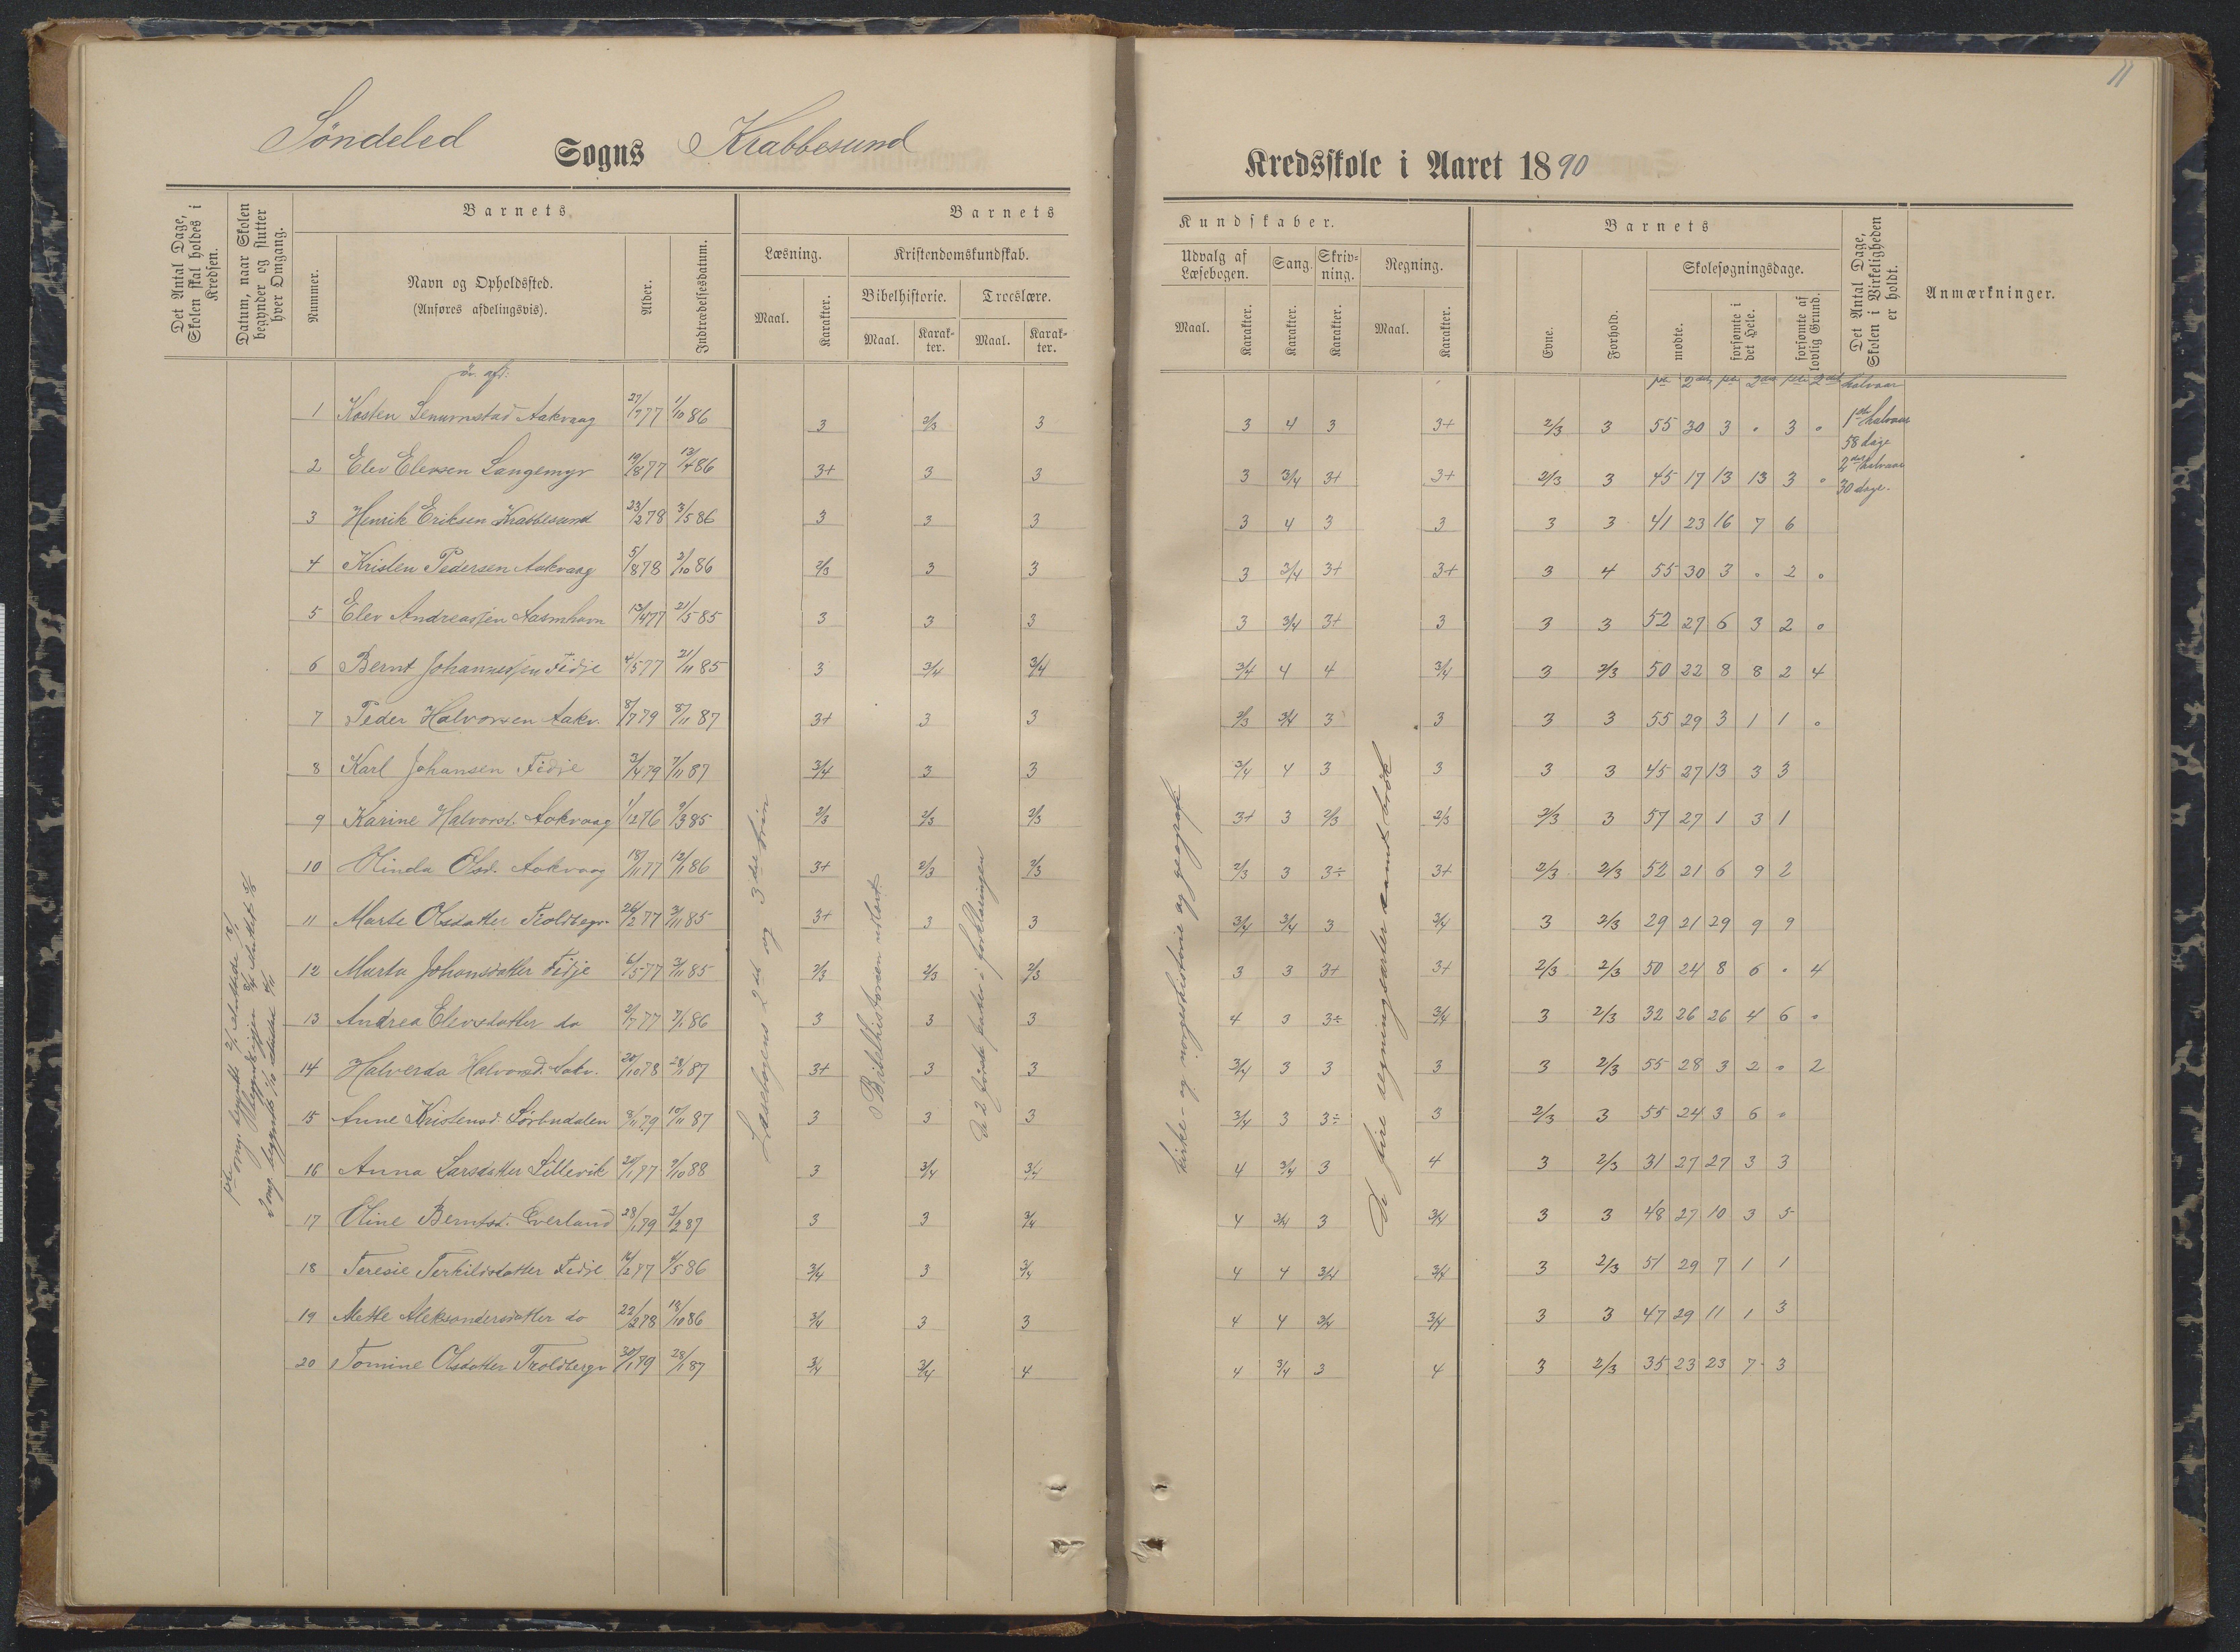 11
Söndeled Sogns Krabbesund Kredsskole i Aaret 1890
Det Antal Dage, Skolen skal holdes i Kredsen.
Datum, naar Skolen begynder og slutter hver Omgang.
Barnets
Nummer.
Navn og Opholdssted.
(Anføres afdelingsvis).
Alder.
Indtrædelsesdatum.
Barnets
Læsning.
Maal.
Karakter.
Kristendomskundskab.
Bibelhistorie.
Maal.
Karakter.
Troeslære.
Maal.
Karakter.
Kundskaber.
Udvalg af Læsebogen.
Maal.
Karakter.
Sang.
Karakter.
Skrivning.
Karakter.
Regning.
Maal.
Karakter.
Barnets
Evne.
Forhold.
Skolesøgningsdage.
mødte.
forsømte i det Hele.
forsømte af lovlig Grund.
Det Antal Dage, Skolen i Virkeligheden er holdt.
Anmærkninger.
öv. afd:
halvaar
1ste halvaar
58 dage
2det halvaar
30 dage.
Læsebogens 2det og 3die trin
Bibelhistorien utlært
de 2 første parter i forklaringen
kirke- og norgeshistorie og geografi
De fire regningsarter samt brök
1 Aakvaag 27/7 77 1/10 86 3 2/3 3 3 4 3 3+ 2/3 3 55 30 3 0 3 0
2 Elev Elevsen Langemyr 19/8 77 13/4 86 3+ 3 3 3 3/4 3+ 3+ 2/3 3 45 17 13 13 3 0
3 Henrik Eriksen Krabbesund 23/2 78 3/5 86 3 3 3 3 4 3 3 3 3 41 23 16 7 6
4 Kristen Pedersen Aakvaag 5/8 78 2/10 86 2/3 3 3 3 3/4 3+ 3+ 3 4 55 30 3 0 2 0
5 Elev Andreassen 21/5 85 3 3 3 3 3/4 3+ 3 3 3 52 27 6 3 2 0
6 Bernt Johannessen Fidje 4/5 77 21/11 85 3 3/4 3/4 3/4 4 4 3/4 3 2/3 50 22 8 8 2 4
7 Peder Halvorsen Aakv. 8/7 79 8/11 87 3+ 3 3 2/3 3/4 3 3 3 3 55 29 3 1 1 0
8 Karl Johansen Fidje 3/4 79 7/11 87 3/4 3 3 3/4 4 3 3 3 3 45 27 13 3 3
9 Karine Halvorsd. Aakvaag 1/12 76 9/3 85 2/3 2/3 2/3 3+ 3 2/3 2/3 2/3 3 57 27 1 3 1
10 Olinda Olsd. Aakvaag 18/11 77 12/1 86 3+ 2/3 2/3 2/3 3 3÷ 3+ 2/3 2/3 52 21 6 9 2
11 Marte Olsdatter Troldbergv. 26/2 77 3/11 85 3+ 3 3 3/4 3/4 3 3/4 3 2/3 29 21 29 9 9
12 Marta Johansdatter Fidje 6/5 77 3/11 85 2/3 2/3 2/3 3 3 3+ 3+ 2/3 2/3 50 24 8 6 0 4
13 Andrea Elevsdatter do 2/7 77 7/1 86 3 3 3 4 3 3÷ 3/4 3 2/3 32 26 26 4 6 0
14 Halverda Halvorsd. Aakv. 20/10 78 28/1 87 3+ 3 3 3/4 3 3 3 3 2/3 55 28 3 2 0 2
15 Anne Kristensd. 8/11 79 10/11 87 3 3 3 3/4 3 3÷ 3 2/3 3 55 24 3 6 0
16 Anna Larsdatter Lillevik 9/10 88 3 3/4 3/4 4 3/4 3 4 3 2/3 31 27 27 3 3
17 Oline Berntsd. Everland 28/1 79 3 3 3/4 4 3/4 3 3/4 3 3 48 27 10 3 5
18 Teresie Terkildsdatter Fidje 16/2 77 4/5 86 3/4 3 3/4 4 4 3/4 3/4 3 2/3 51 29 7 1 1
19 Mette Aleksandersdatter do 22/2 78 18/10 86 3/4 3 3 4 4 3/4 3/4 3 3 47 29 11 1 3
20 Tomine Olsdatter Troldbergv 30/1 79 28/1 87 3/4 3/4 4 4 3/4 3 4 3 2/3 35 23 23 7 3